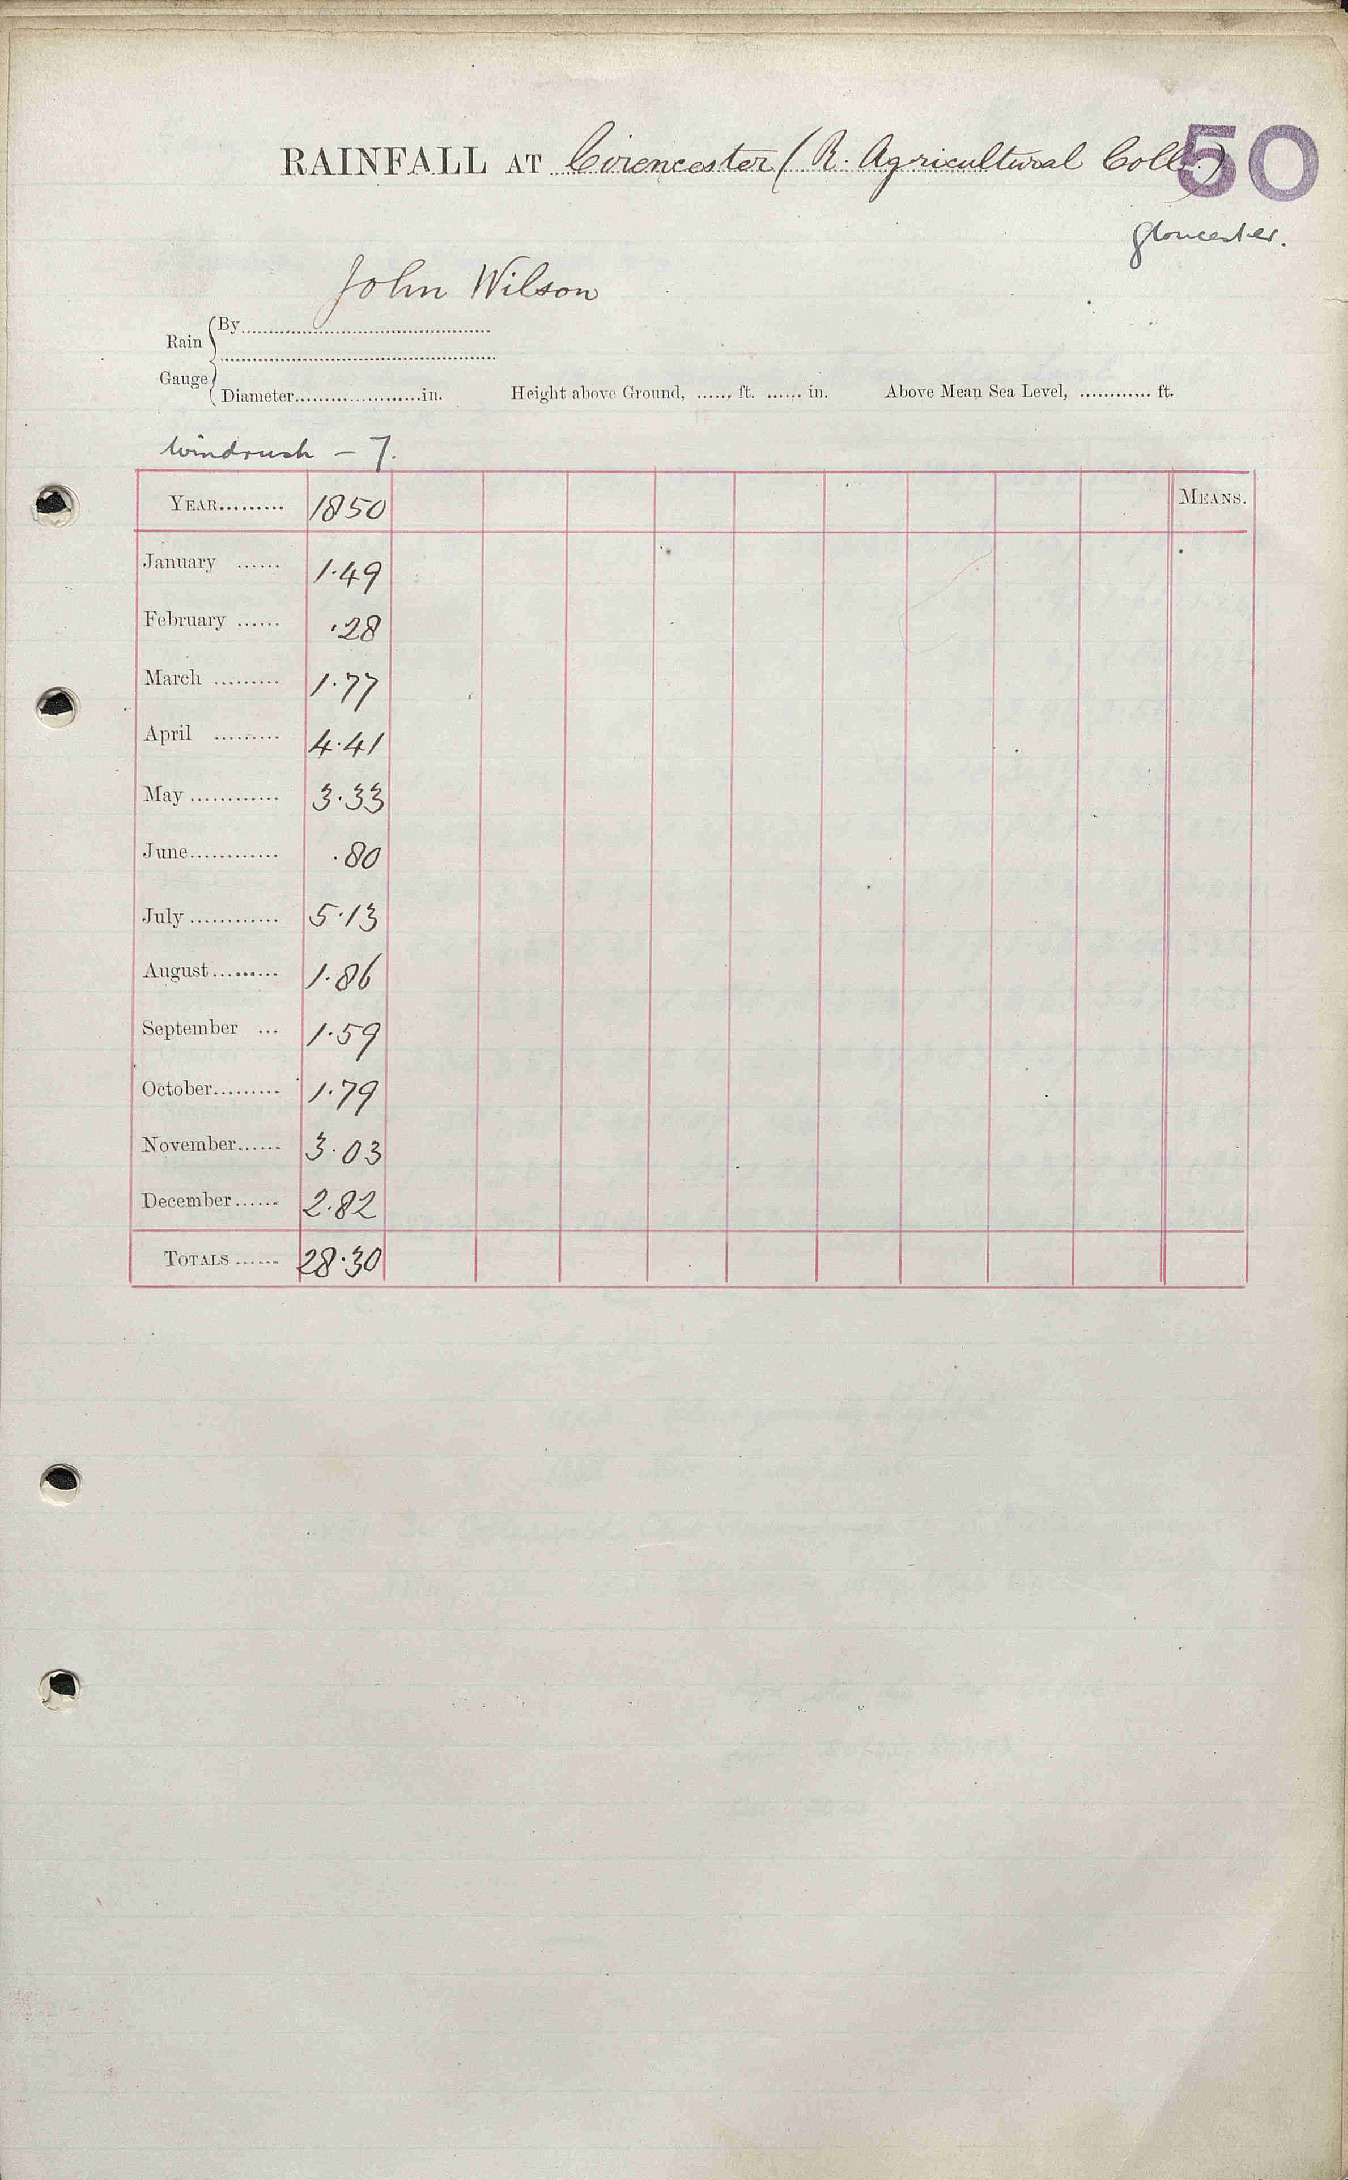 50
RAINFALL AT Cirencester (R. Agricultural Coll.)
Gloucester.
John Wilson
Rain Gauge { By..........
Diameter..........in. Height above Ground, ...... ft. ...... in. Above Mean Sea Level, ............ ft.
Windrush – 7.
YEAR......... 1850 MEANS.
January ...... 1·49
February ...... ·28
March ......... 1·77
April ......... 4·41
May ............ 3·33
June............ ·80
July ............ 5·13
August......... 1·86
September ... 1·59
October......... 1·79
November...... 3·03
December...... 2·82
TOTALS ...... 28·30